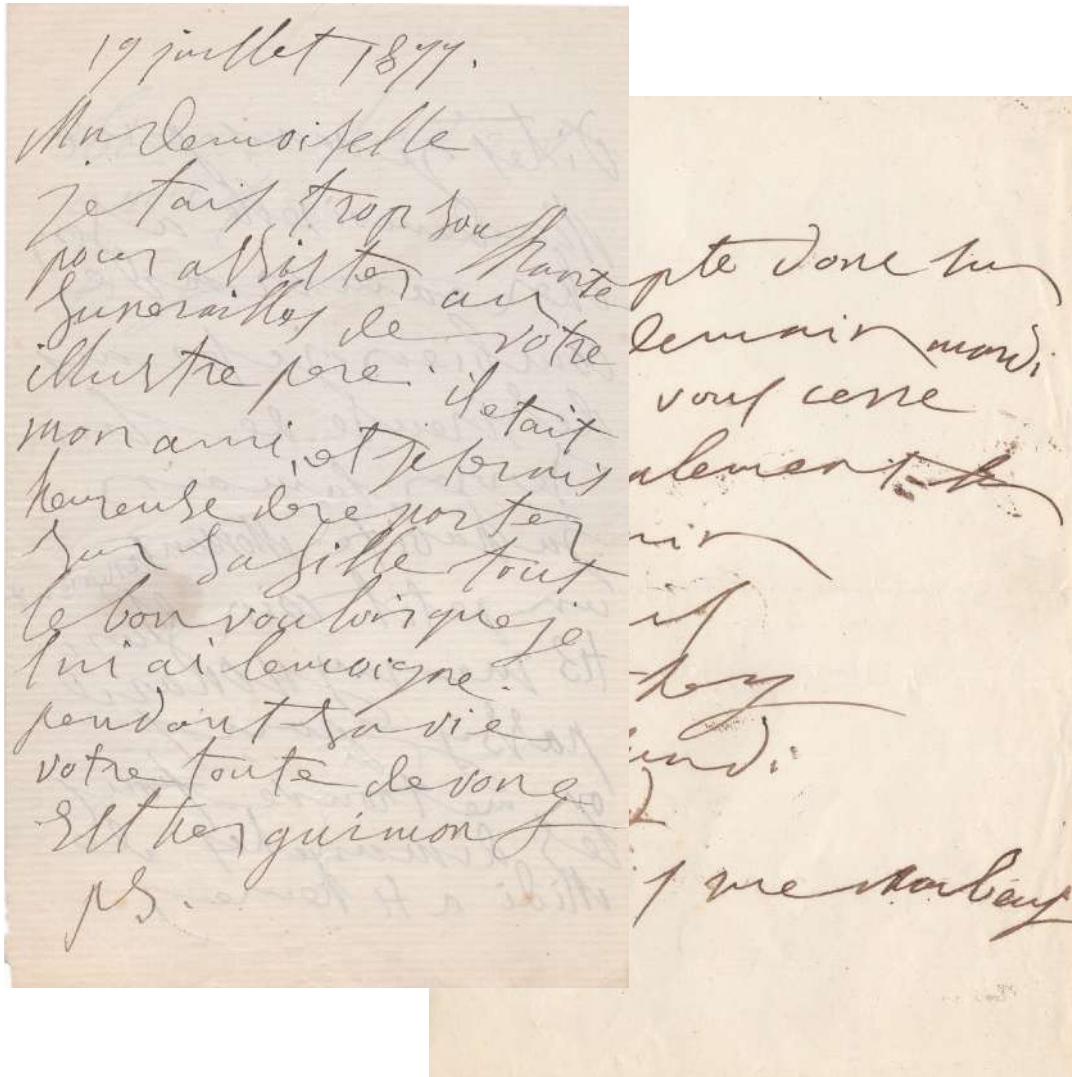 19 juillet 1877.
Mademoiselle
jetais trop souffrante
pour assister aux
funerailles de votre
illustre pere. il etait
mon ami, et je ferais
heureuse de reporter
sur sa fille tout
le bon vouloir que je
lui ai temoigne
pendant sa vie
votre toute devouee
Esther guimont
ps.
pte donc sur
demain mardi
vous cene
alement
undi
rue